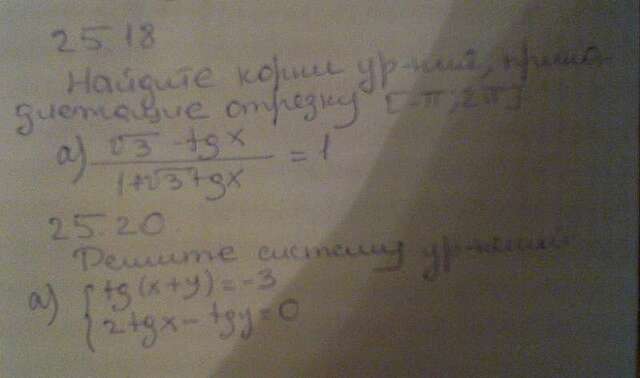 25.18
Найдите корни ур-ний, принад-
длежащие отрезку [-π; 2π]
а) (√3 - tg x) / (1+√3 tg x) = 1
25.20
Решите систему ур-ний
а) { tg(x+y) = -3
2tg x - tg y = 0